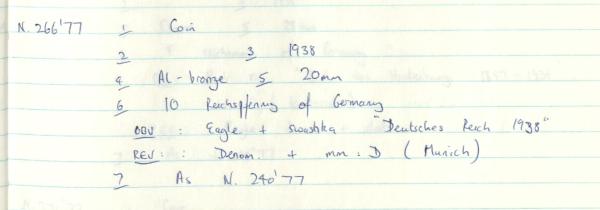 N. 266'77 1 Coin
2 3 1938
4 AL-bronze 5 20mm
6 10 Reichspfennig of Germany
OBV: Eagle + swastika "Deutsches Reich 1938"
REV: Denom. + mm: D (Munich)
7 As N. 240'77